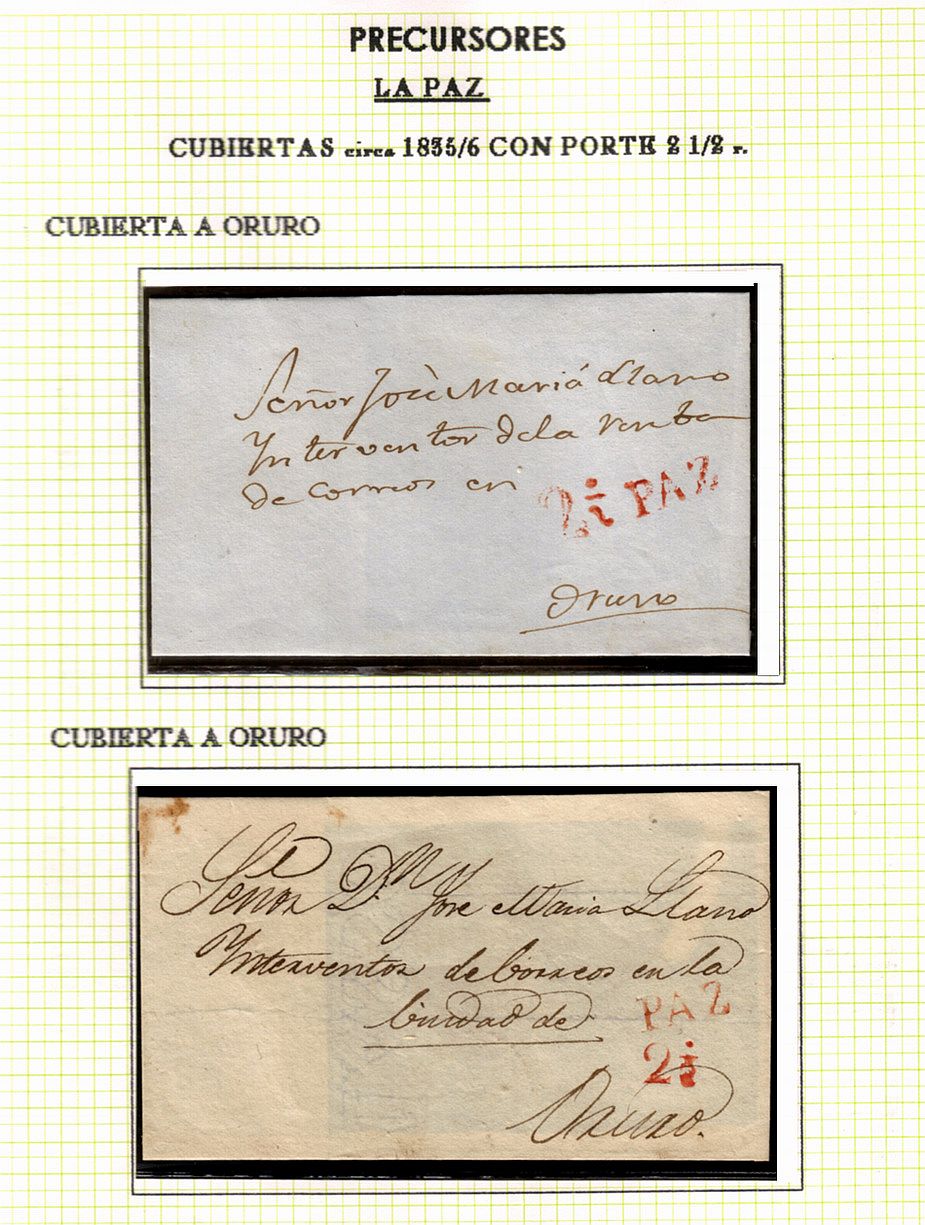 PRECURSORES
LA PAZ
CUBIERTAS circa 1835/6 CON PORTE 2 1/2 r.
CUBIERTA A ORURO
Señor Josè Mariá Llano
Interventor dela renta
de Correos en
2½ PAZ
Oruro
CUBIERTA A ORURO
Señor Dn Jose Maria Llano
Interventor de Correos en la
Ciudad de
PAZ
2½
Oruro.